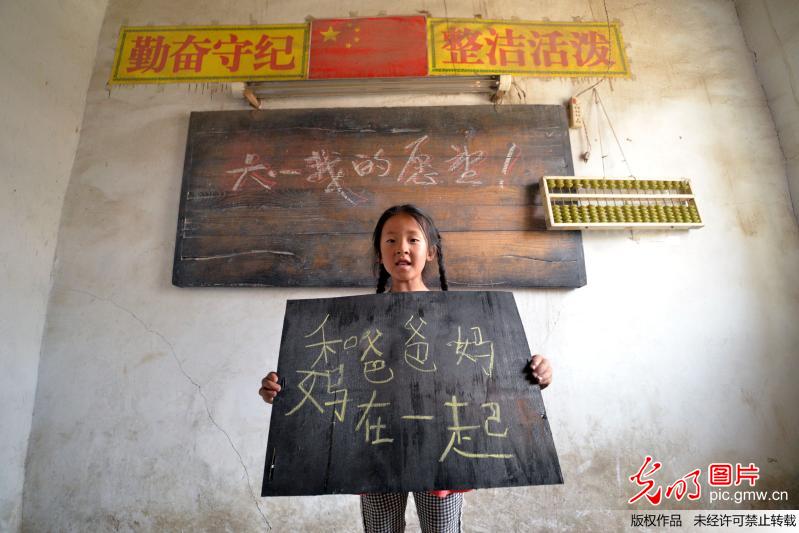 勤奋守纪 整洁活泼
六一我的愿望！
和爸爸妈
妈在一起
光明图片
pic.gmw.cn
版权作品 未经许可禁止转载